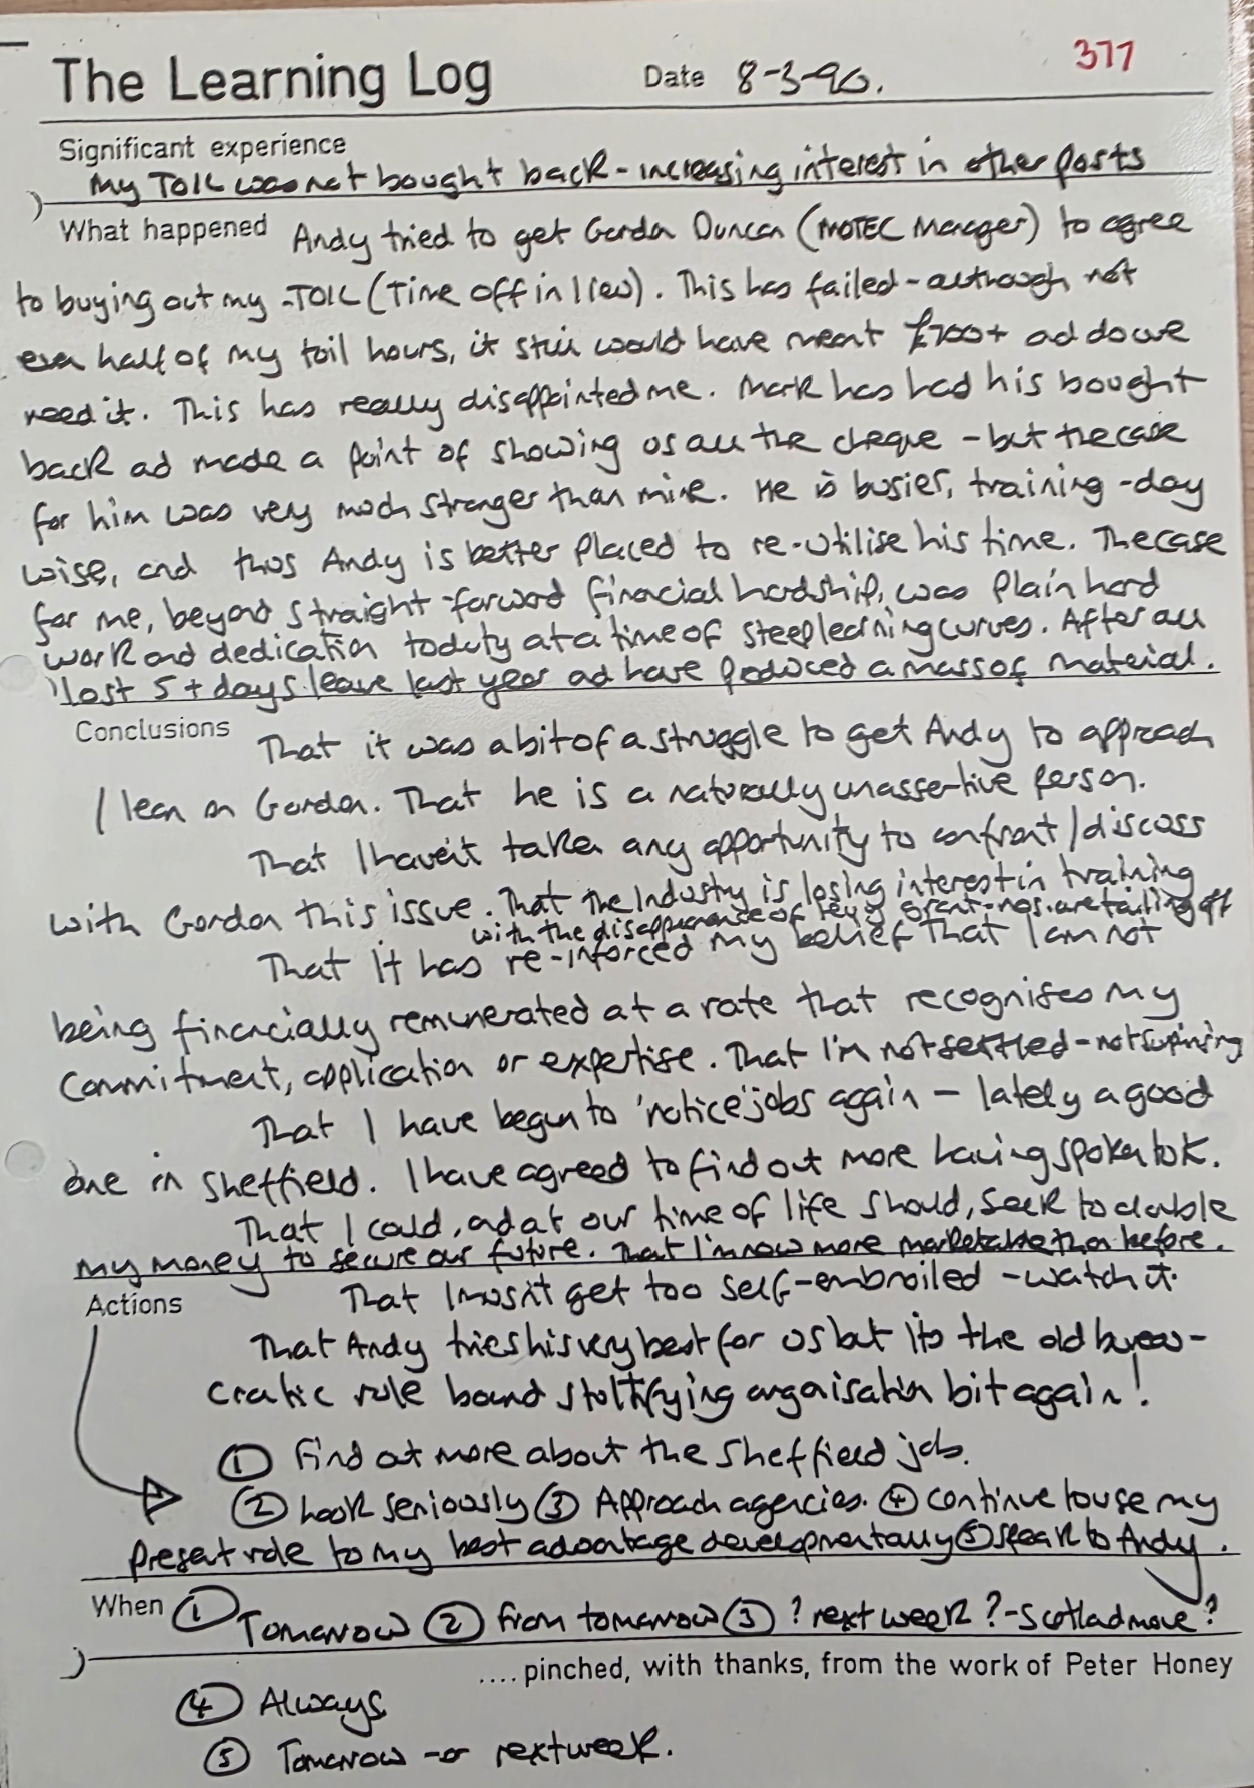 The Learning Log Date 8-3-90. 377
Significant experience
My TOIL was not bought back - increasing interest in other posts
What happened Andy tried to get Gordon Duncan (MOTEC Manager) to agree
to buying out my -TOIL (Time off in lieu). This has failed - although not
even half of my toil hours, it still would have meant £700+ ad do we
need it. This has really disappointed me. Mark has had his bought
back ad made a point of showing us all the cheque - but the case
for him was very much stronger than mine. He is busier, training -day
wise, and thus Andy is better placed to re-utilise his time. The case
for me, beyond straight-forward financial hardship, was plain hard
work and dedication to duty at a time of steep learning curves. After all
I lost 5+ days leave last year ad have produced a mass of material.
Conclusions That it was a bit of a struggle to get Andy to approach
/ lean on Gordon. That he is a naturally unassertive person.
That I haven't taken any opportunity to confront / discuss
with Gordon this issue. That the Industry is losing interest in training
with the disappearance of levy grant - nos. are tailing off
That it has re-inforced my belief that I am not
being financially remunerated at a rate that recognises my
commitment, application or expertise. That I'm not settled - not surprising
That I have begun to 'notice' jobs again - lately a good
one in Sheffield. I have agreed to find out more having spoken to K.
That I could, ad at our time of life should, seek to double
my money to secure our future. That I'm now more marketable than before.
Actions That I mustn't get too self-embroiled - watch it.
That Andy tries his very best for us but it's the old bureau-
cratic rule bound stultifying organisation bit again!
① Find out more about the Sheffield job.
② Look seriously ③ Approach agencies. ④ Continue to use my
present role to my best advantage developmentally ⑤ Speak to Andy.
When ① Tomorrow ② from tomorrow ③ ? next week ? - Scotland move?
.... pinched, with thanks, from the work of Peter Honey
④ Always
⑤ Tomorrow - or next week.